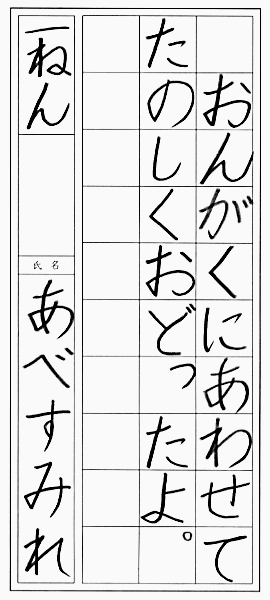 おんがくにあわせて
たのしくおどったよ。
一ねん
氏名
あべすみれ